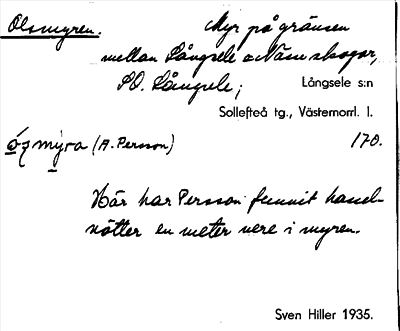 Olsmyren. Myr på gränsen
mellan Långsele o Näsås skogar,
SO. Långsele; Långsele s:n
Sollefteå tg., Västernorrl. l.
(A. Persson) 170.
Här har Persson funnit hassel-
nötter en meter nere i myren.
Sven Hiller 1935.